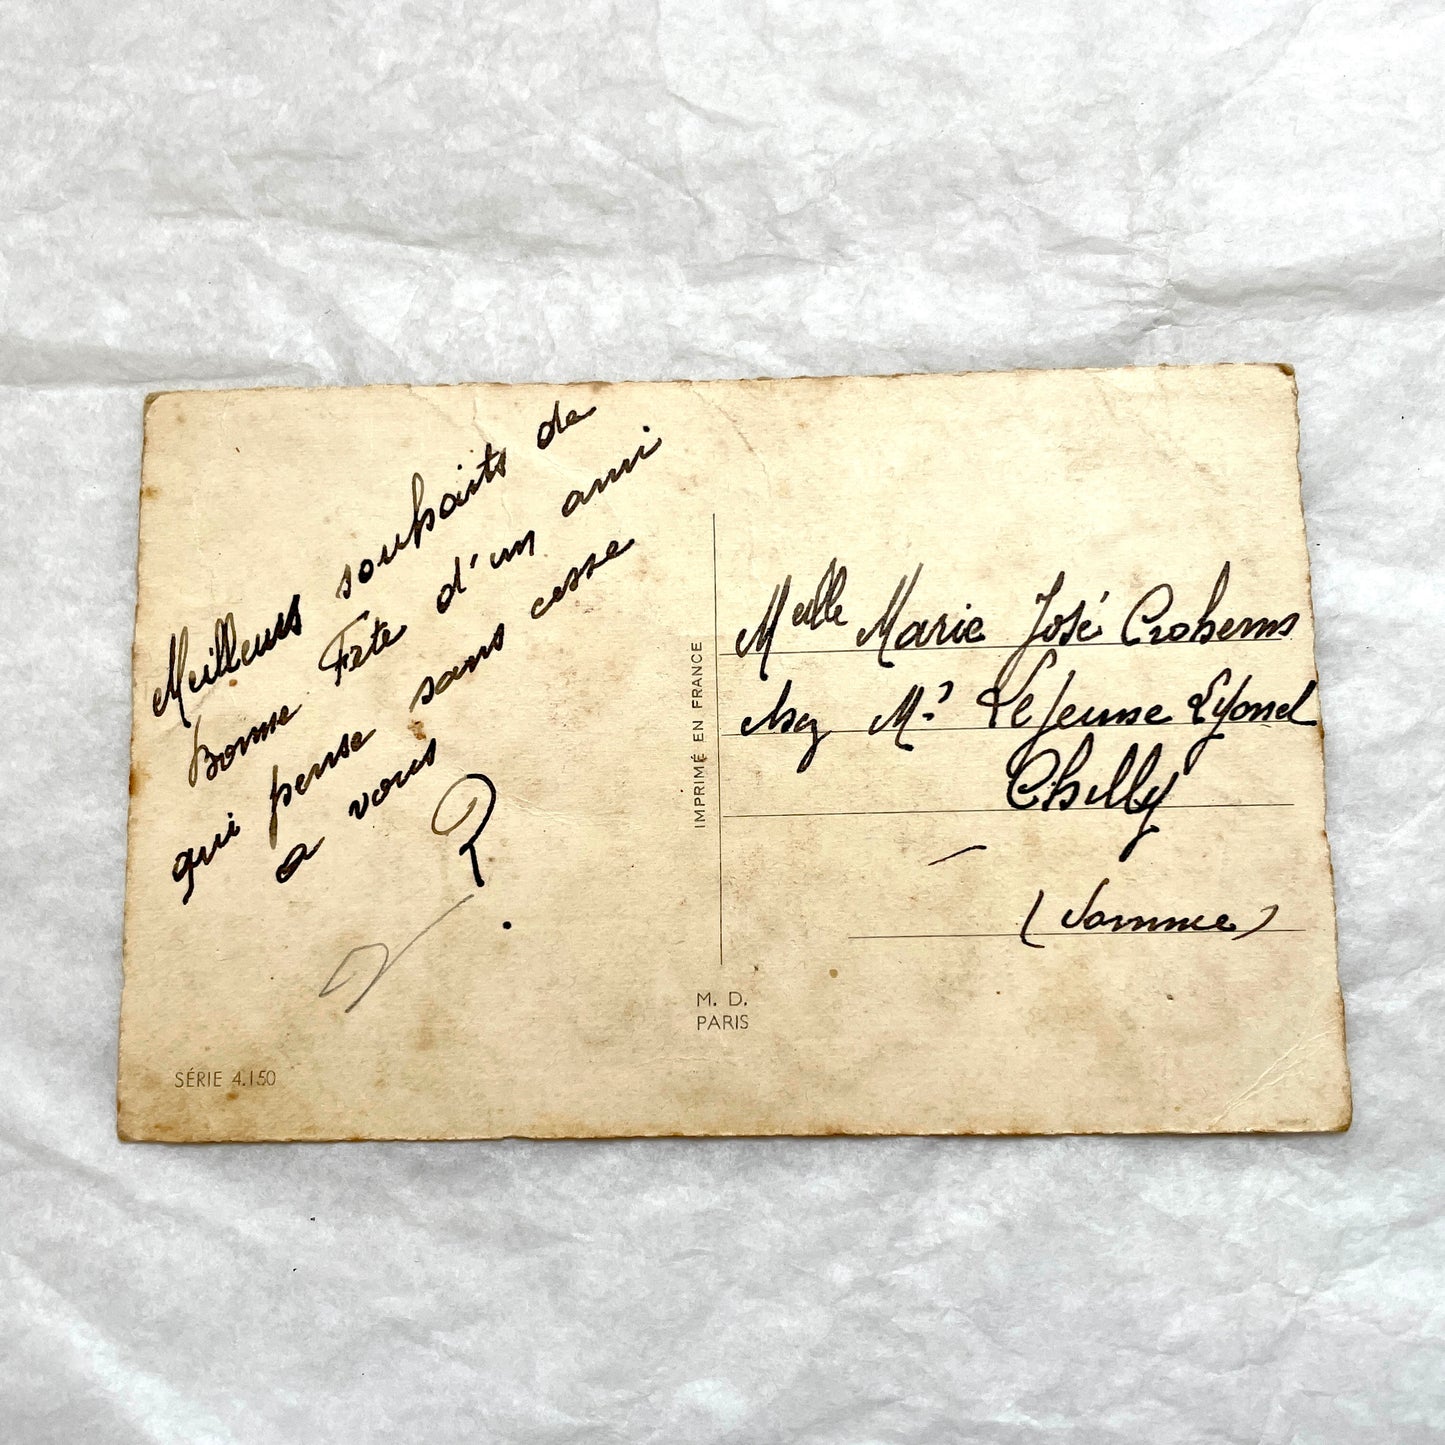 Meilleurs souhaits de
Bonne Fête d'un ami
qui pense sans cesse
a vous
?
Melle Marie José
M.r Lejeune Lyonel
Chilly
(Somme)
IMPRIMÉ EN FRANCE
M. D.
PARIS
SÉRIE 4.150